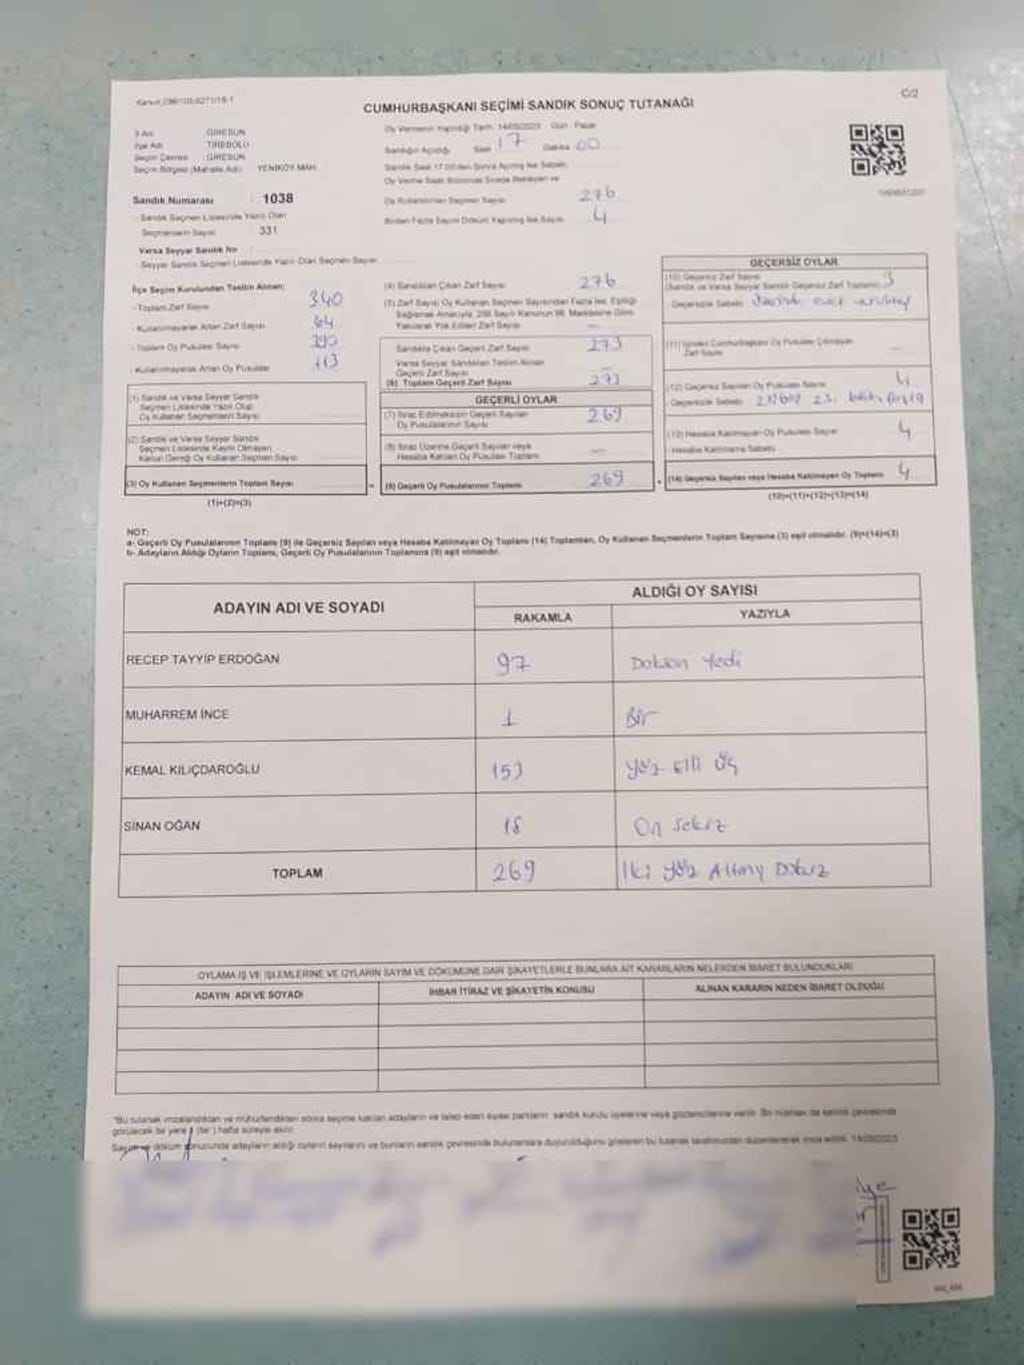 CUMHURBAŞKANI SEÇİMİ SANDIK SONUÇ TUTANAĞI
C/2
İli Adı : GİRESUN
İlçe Adı : TİREBOLU
Seçim Çevresi : GİRESUN
Seçim Bölgesi (Mahalle Adı) : YENİKÖY MAH.
Sandık Numarası : 1038
- Sandık Seçmen Listesinde Yazılı Olan
Seçmenlerin Sayısı : 331
Varsa Seyyar Sandık No :
- Seyyar Sandık Seçmen Listesinde Yazılı Olan Seçmen Sayısı
Oy Vermenin Yapıldığı Tarih: 14/05/2023 Gün: Pazar
Sandığın Açıldığı Saat 17 Dakika 00
Sandık Saat 17.00'den Sonra Açılmış İse Sebebi
Oy Kullandırılan Seçmen Sayısı 276
Birden Fazla Sayım Dökümü Yapılmış İse Sayısı 4
İlçe Seçim Kurulundan Teslim Alınan;
- Toplam Zarf Sayısı 340
- Kullanılmayarak Artan Zarf Sayısı 64
- Toplam Oy Pusulası Sayısı 390
- Kullanılmayarak Artan Oy Pusulası 113
(1) Sandık ve Varsa Seyyar Sandık
Seçmen Listesinde Yazılı Olup
Oy Kullanan Seçmenlerin Sayısı
(2) Sandık ve Varsa Seyyar Sandık
Seçmen Listesinde Kayıtlı Olmayan
Kanun Gereği Oy Kullanan Seçmen Sayısı
(3) Oy Kullanan Seçmenlerin Toplam Sayısı
(1)+(2)=(3)
(4) Sandıktan Çıkan Zarf Sayısı 276
(5) Zarf Sayısı Oy Kullanan Seçmen Sayısından Fazla İse, Eşitliği
Sağlamak Amacıyla, 298 Sayılı Kanunun 98. Maddesine Göre
Yakılarak Yok Edilen Zarf Sayısı —
Sandıkta Çıkan Geçerli Zarf Sayısı 273
Varsa Seyyar Sandıktan Teslim Alınan
Geçerli Zarf Sayısı
(6) Toplam Geçerli Zarf Sayısı 273
GEÇERLİ OYLAR
(7) İtiraz Edilmeksizin Geçerli Sayılan
Oy Pusulalarının Sayısı 269
(8) İtiraz Üzerine Geçerli Sayılan veya
Hesaba Katılan Oy Pusulası Toplamı —
(9) Geçerli Oy Pusulalarının Toplamı 269
GEÇERSİZ OYLAR
(10) Geçersiz Zarf Sayısı
(Sandık ve Varsa Seyyar Sandık Geçersiz Zarf Toplamı) 3
Geçersizlik Sebebi
(11) İçinden Cumhurbaşkanı Oy Pusulası Çıkmayan
Zarf Sayısı —
(12) Geçersiz Sayılan Oy Pusulası Sayısı 4
Geçersizlik Sebebi
(13) Hesaba Katılmayan Oy Pusulası Sayısı 4
Hesaba Katılmama Sebebi
(14) Geçersiz Sayılan veya Hesaba Katılmayan Oy Toplamı 4
(10)+(11)+(12)+(13)=(14)
NOT:
a- Geçerli Oy Pusulalarının Toplamı (9) ile Geçersiz Sayılan veya Hesaba Katılmayan Oy Toplamı (14) Toplamları, Oy Kullanan Seçmenlerin Toplam Sayısına (3) eşit olmalıdır. (9)+(14)=(3)
b- Adayların Aldığı Oyların Toplamı, Geçerli Oy Pusulalarının Toplamına (9) eşit olmalıdır.
ADAYIN ADI VE SOYADI
ALDIĞI OY SAYISI
RAKAMLA YAZIYLA
RECEP TAYYİP ERDOĞAN 97 Doksan Yedi
MUHARREM İNCE 1 Bir
KEMAL KILIÇDAROĞLU 153 Yüz Elli Üç
SİNAN OĞAN 18 On Sekiz
TOPLAM 269 İki Yüz Altmış Dokuz
OYLAMA İŞ VE İŞLEMLERİNE VE OYLARIN SAYIM VE DÖKÜMÜNE DAİR ŞİKAYETLERLE BUNLARA AİT KARARLARIN NELERDEN İBARET BULUNDUKLARI
ADAYIN ADI VE SOYADI
İHBAR İTİRAZ VE ŞİKAYETİN KONUSU
ALINAN KARARIN NEDEN İBARET OLDUĞU
*Bu tutanak imzalandıktan ve mühürlendikten sonra seçime katılan adayların ve talep eden siyasi partilerin sandık kurulu üyelerine veya gözlemcilerine verilir. Bir nüshası da sandık çevresinde
görülecek bir yere 1 (bir) hafta süreyle asılır.
Sayım ve döküm sonucunda adayların aldığı oyların sayılarını ve bunların sandık çevresinde bulunanlara duyurulduğunu gösteren bu tutanak tarafımızdan düzenlenerek imza edildi. 14/05/2023